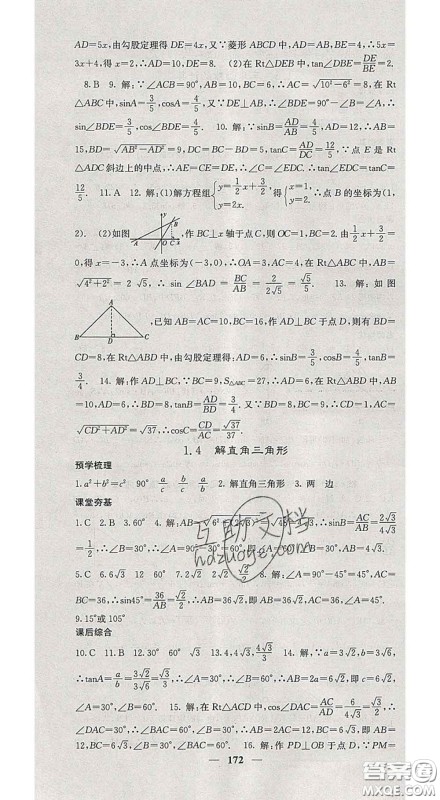 AD=5x,由勾股定理得 DE=4x,又∵菱形 ABCD 中,AD=AB,BE=4,∴5x=
3x+4,得 x=2,∴AD=10,DE=8. (2)在 Rt△DEB 中,tan∠DBE=DE/BE=2.
8.B 9. 解:∵∠ACB=90°,AB=10,BC=6,∴AC=√(10²-6²)=8,在 Rt
△ABC 中,sinA=3/5,cosA=4/5,又∵DE⊥AB,∴∠BDE=90°-∠B=∠A,∴
sin∠BDE=3/5,cos∠BDE=4/5. 10. 解:∵在 Rt△ABD 中,sinB=AD/AB=4/5,AB=
15,BD=√(AB²-AD²)=9,DC=BC-BD=5,tanC=AD/DC=12/5,∵点 E 是 Rt
△ADC 斜边上的中点,∴AE=CE=DE,∴∠C=∠EDC,∴tan∠EDC=tanC=
12/5. 11.A 12. 解:(1)解方程组{y=1/2x+3/2, y=2x. 得{x=1, y=2. ∴点 B 的坐标为(1,
2). (2)如图 ,作 BC⊥x 轴于点 C,则 OC=1,BC=2. 由1/2x+3/2=
0,得 x=-3,∴A 点坐标为(-3,0),∴OA=3,AC=4,在 Rt△ABC 中,AB=
√(4²+2²)=2√5,∴sin∠BAD=BC/AB=2/(2√5)=√5/5. 13. 解:如图
,已知 AB=AC=10,BC=16,作 AD⊥BC 于点 D,则有 BD=
CD=8,在 Rt△ABD 中,由勾股定理得:AD=6,∴sinB=3/5,cosB=4/5,tanB=
3/4. 14. 解:作 AD⊥BC,∵BC=9,S△ABC=27,∴AD=6,在 Rt△ABD 中,AB
=10,∴BD=8,AB=10,∴BD=8,
√(CD²+AD²)=√37,∴cosC=CD/AC=√37/37.
1.4 解直角三角形
预学梳理
1.a²+b²=c² 90° a/c b/c a/b 2.解直角三角形 3.两 边
课堂夯基
1.C 2.B 3.60° 4.解:
=1/2,∴∠B=30°,∴∠A=90°-30°=60°,
5.C 6.6√3 12 7.2√2 8.解:∠A=90°-45°=45°,AC=
BC=36,∴sin45°=36/AB=√2/2,∴AB=36√2,即 AB=36√2,AC=36,∠A=45°.
9.15°或105°
课后综合
10.C 11.B 12.30° 60° √3 13.4,4√3 14.解:∵a=3√2,b=3√6,
∴tanA=a/b=3√2/3√6=√3/3,∴∠A=30°,∠B=60°,∴AB=2a=6√2,即 c=6√2,
∠A=30°,∠B=60°. 15.解:∵cos∠DAC=AC/AD=6/4√3=√3/2,∴∠DAC=30°,又∵
∠DAC=30°,∴∠BAC=2∠DAC=60°,∴∠B=30°,∴AB=2AC=12,即 AB=
12,BC=6√3,∠B=30°,∠BAC=60°. 16.解:作 PD⊥OB 于点 D,∵PM=
172
互助文档
hdzuoye.com
答案圈
MXQE.COM